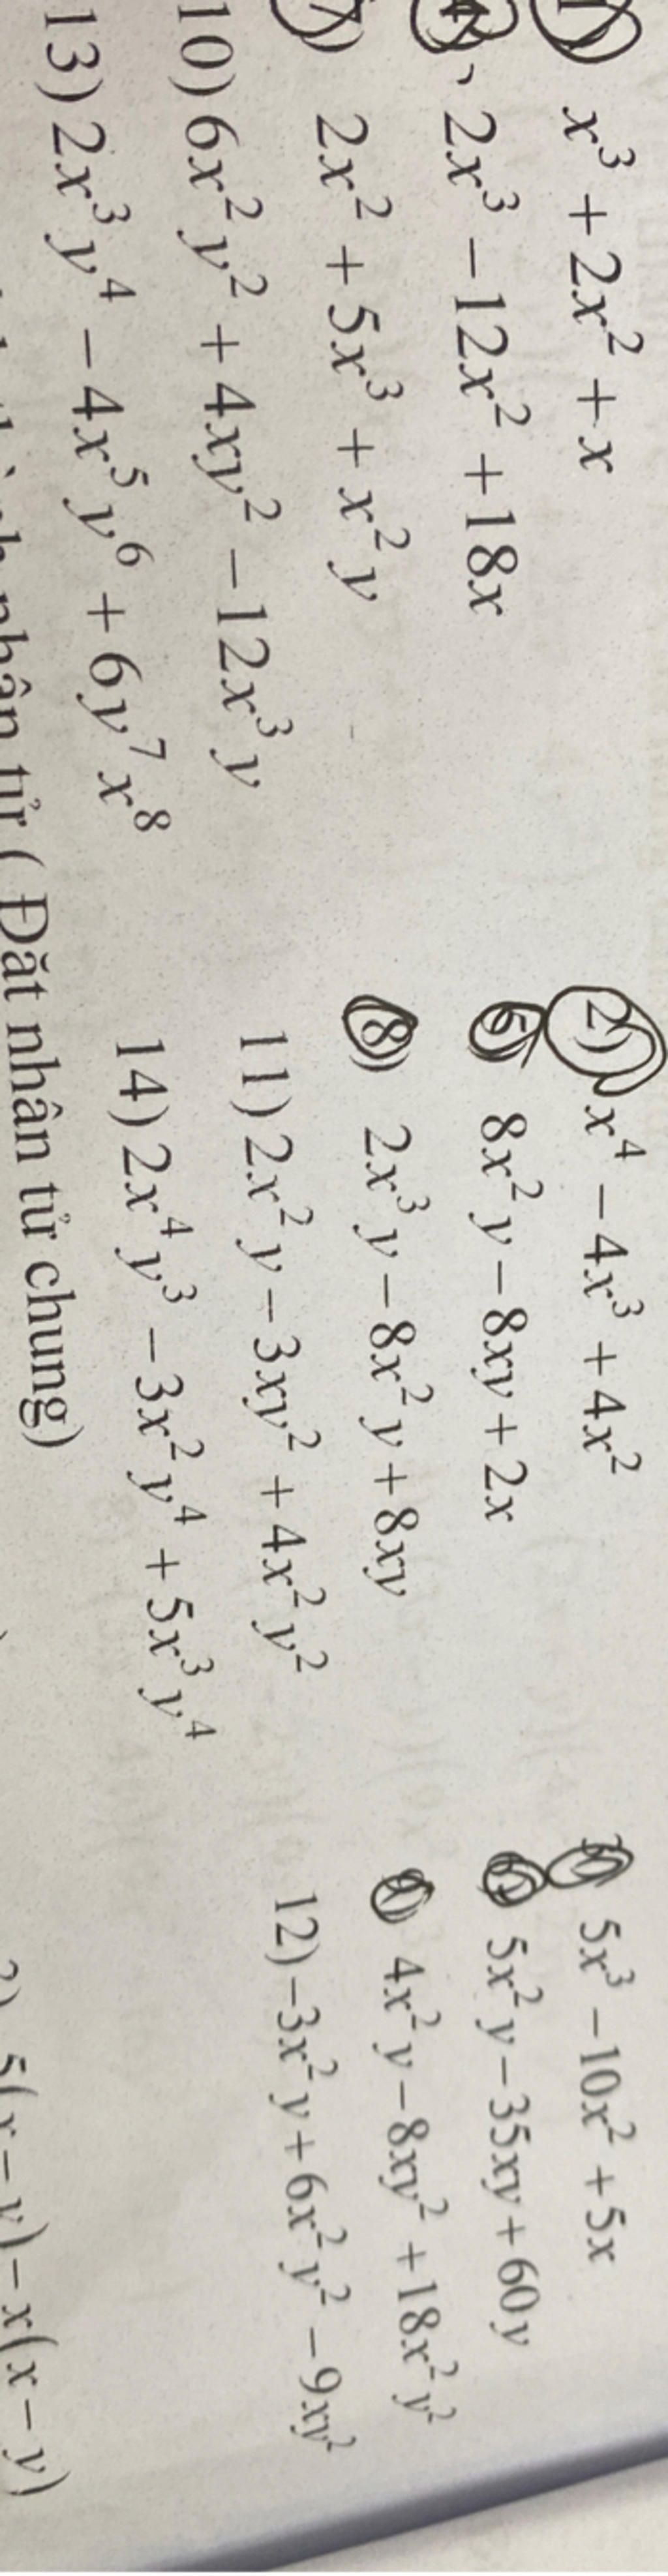 1) x³ + 2x² + x 2) x⁴ − 4x³ + 4x² 5x³ − 10x² + 5x
2x³ − 12x² + 18x 5) 8x²y − 8xy + 2x 5x²y − 35xy + 60y
7) 2x² + 5x³ + x²y 8) 2x³y − 8x²y + 8xy 4x²y − 8xy² + 18x²y²
10) 6x²y² + 4xy² − 12x³y 11) 2x²y − 3xy² + 4x²y² 12) −3x²y + 6x²y² − 9xy²
13) 2x³y⁴ − 4x⁵y⁶ + 6y⁷x⁸ 14) 2x⁴y³ − 3x²y⁴ + 5x³y⁴
nhân tử ( Đặt nhân tử chung)
2) 5(x − y) − x(x − y)